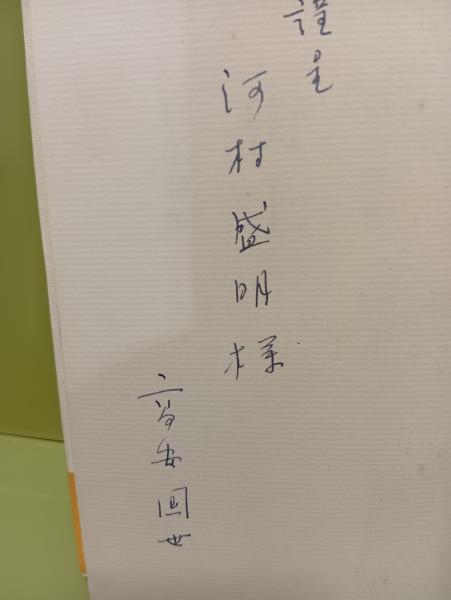 謹呈
河村盛明様
高安国世